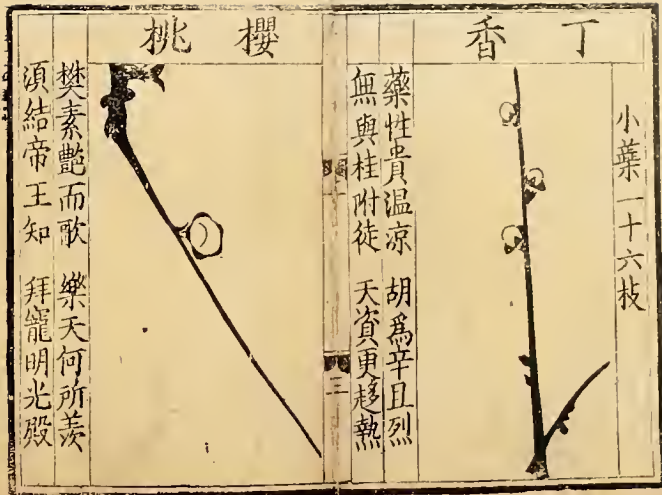 丁香
小蘂一十六枝
藥性貴温凉　胡爲辛且烈
無與桂附徒　天資更趍熱
三
櫻桃
樊素艷而歌　樂天何所羡
湏結帝王知　拜寵明光殿